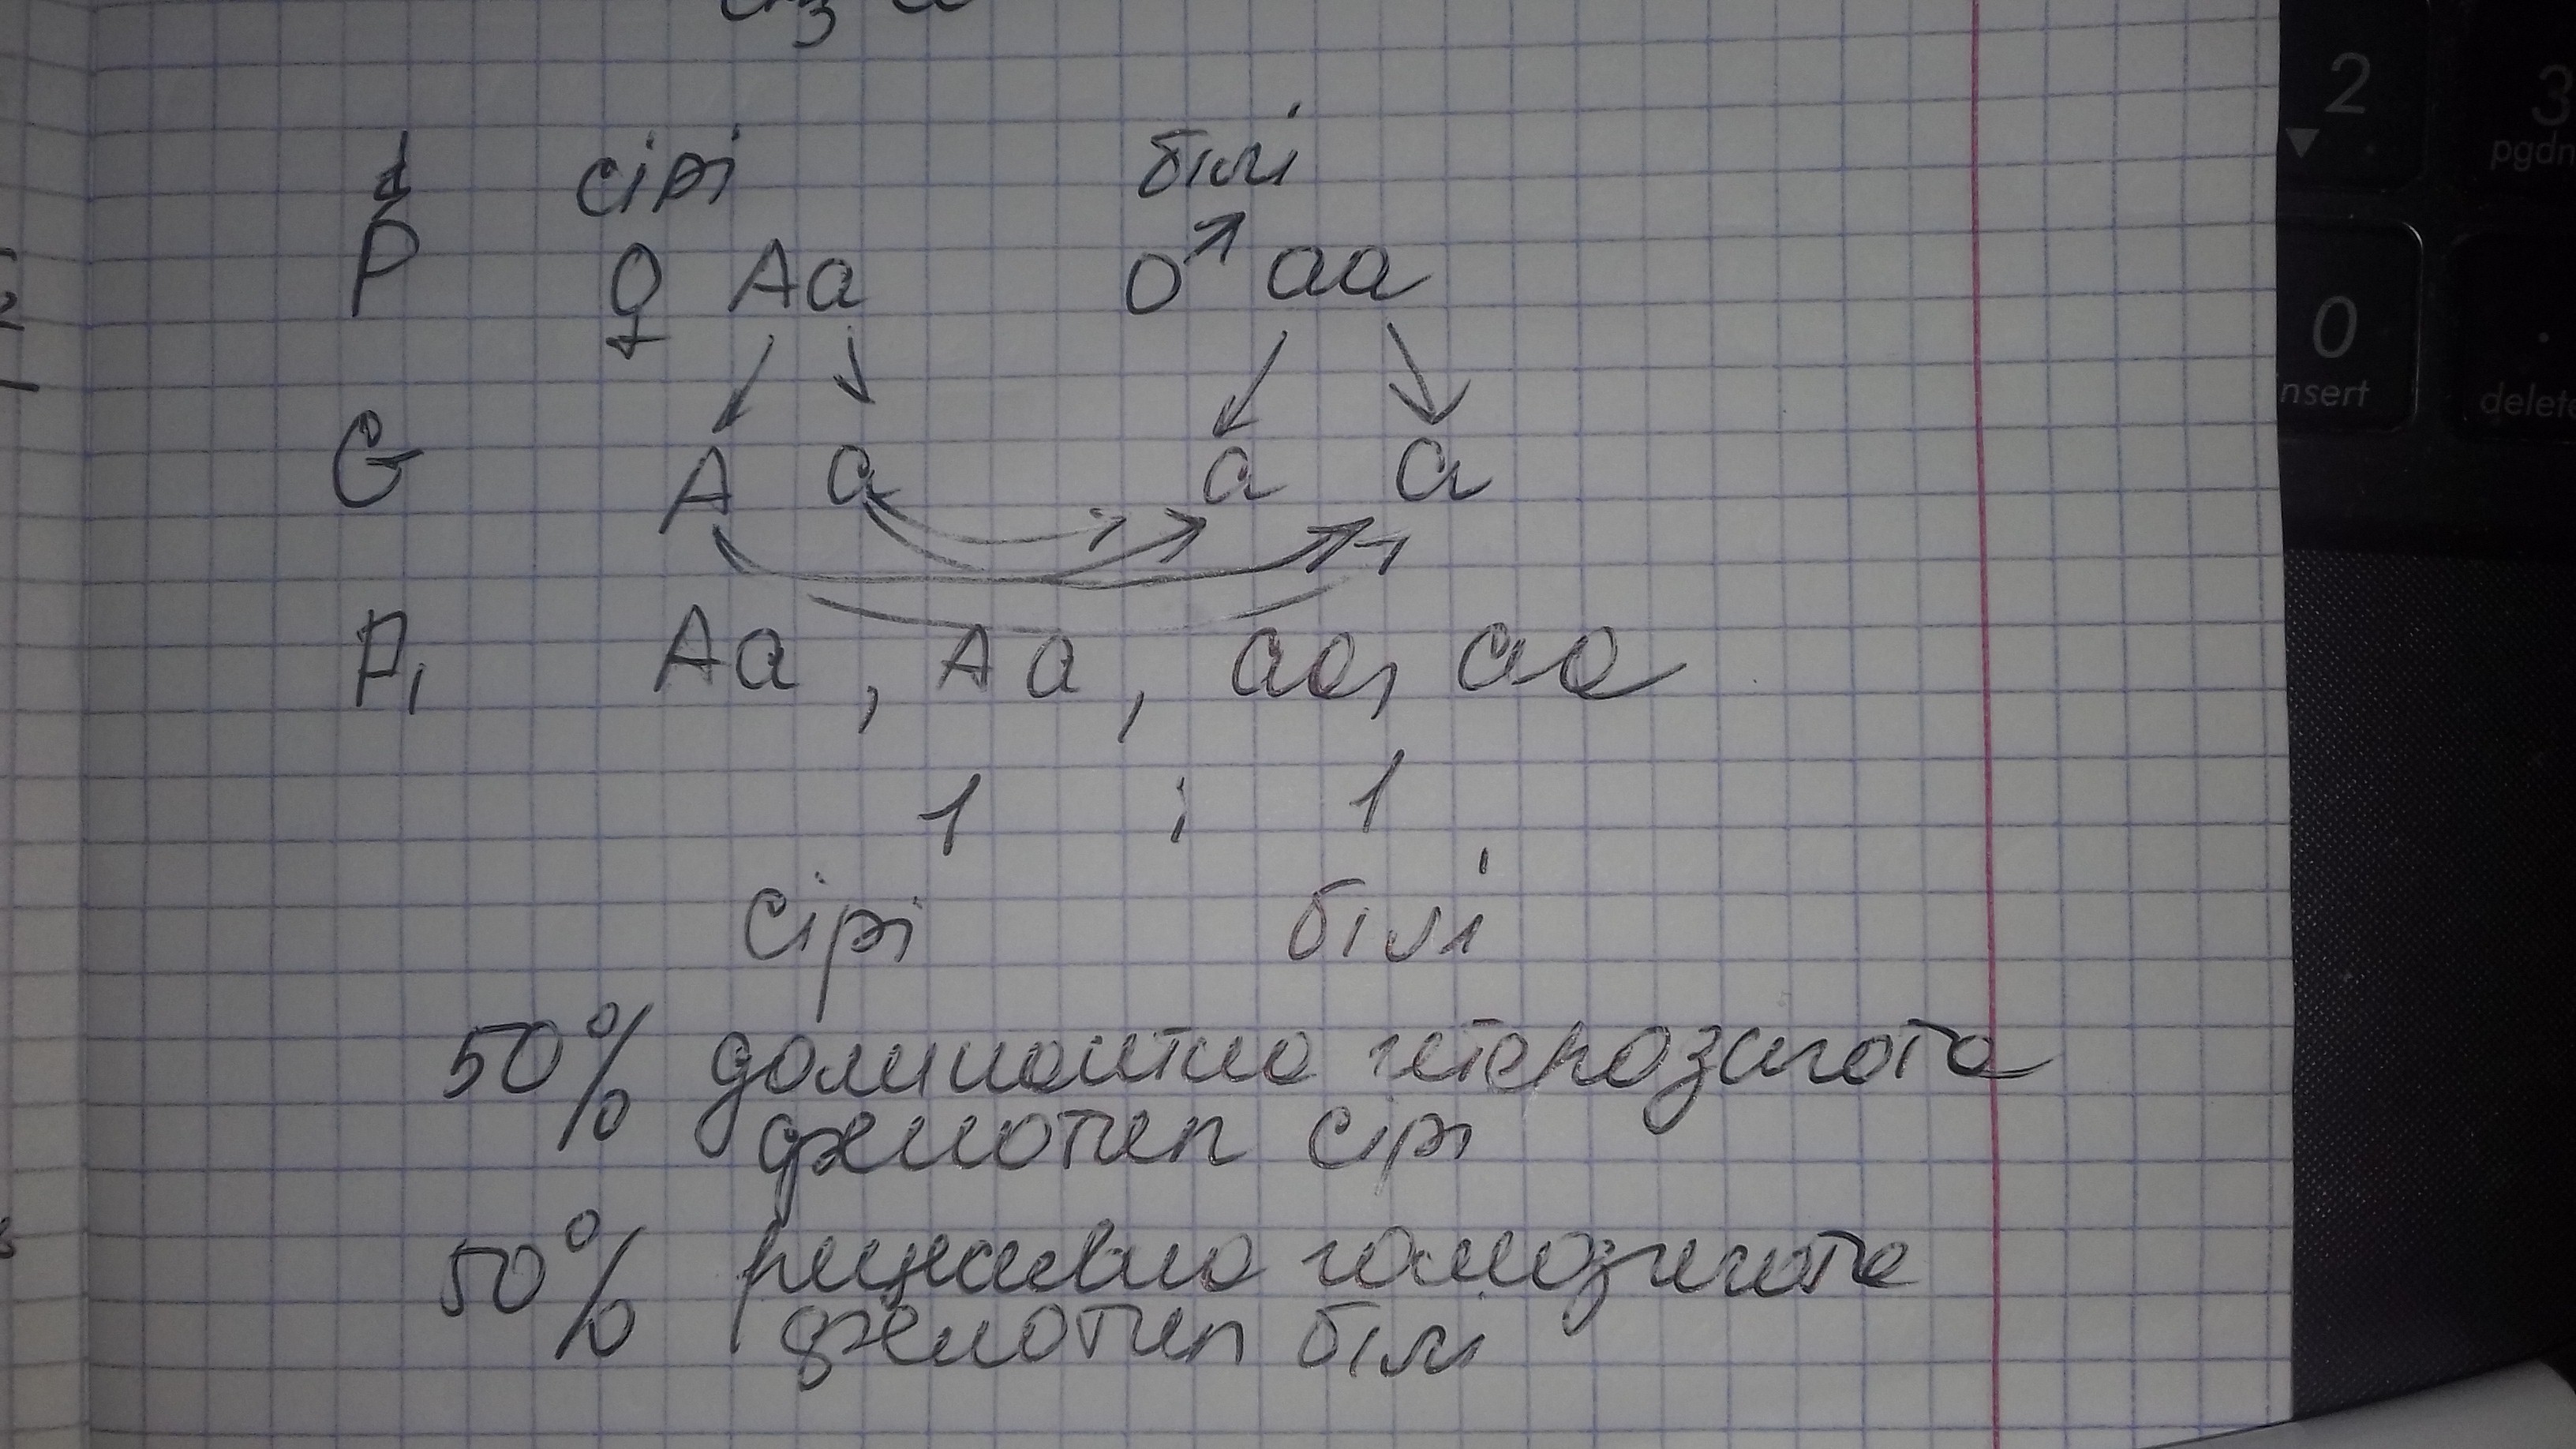 сірі білі
P ♀ Aa ♂ aa
G A a a a
P₁ Aa, Aa, aa, aa
1 : 1
сірі білі
50% домінантно гетерозигота
фенотип сірі
50% рецесивно гомозигота
фенотип білі
2
3
pgdn
0
insert
.
delete